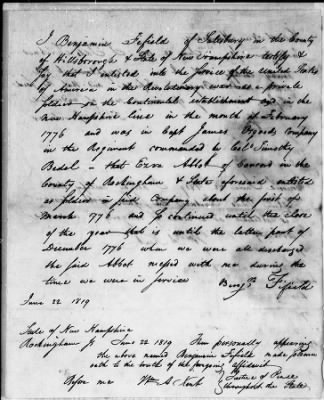 I Benjamin Fifield of Salisbury in the County
of Hillsborough & State of New Hampshire certify &
say that I enlisted into the service of the United States
of America in the Revolutionary war as a private
soldier on the Continental establishment and in the
New Hampshire line in the month of February
1776 and was in Capt James Osgoods Company
in the Regiment commanded by Col Timothy
Bedel - that Ezra Abbot of Concord in the
County of Rockingham & State aforesaid enlisted
as soldier in said Company about the first of
March 1776 and so continued until the close
of the year that is until the latter part of
December 1776 when we were all discharged
the said Abbot messed with me during the
time we were in service
Benjn Fifield
June 22 1819
State of New Hampshire
Rockingham ss June 22 1819 Then personally appearing
the above named Benjamin Fifield made solemn
oath to the truth of the foregoing affidavit
Before me Wm A Kent Justice of Peace
throughout the State